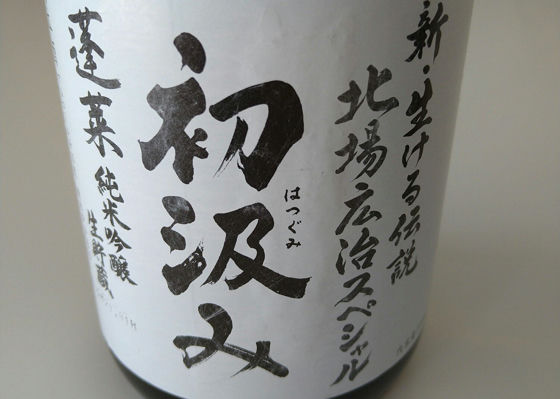 新・生ける伝説
北場広治スペシャル
初汲み
はつぐみ
蓬莱
純米吟醸
生貯蔵